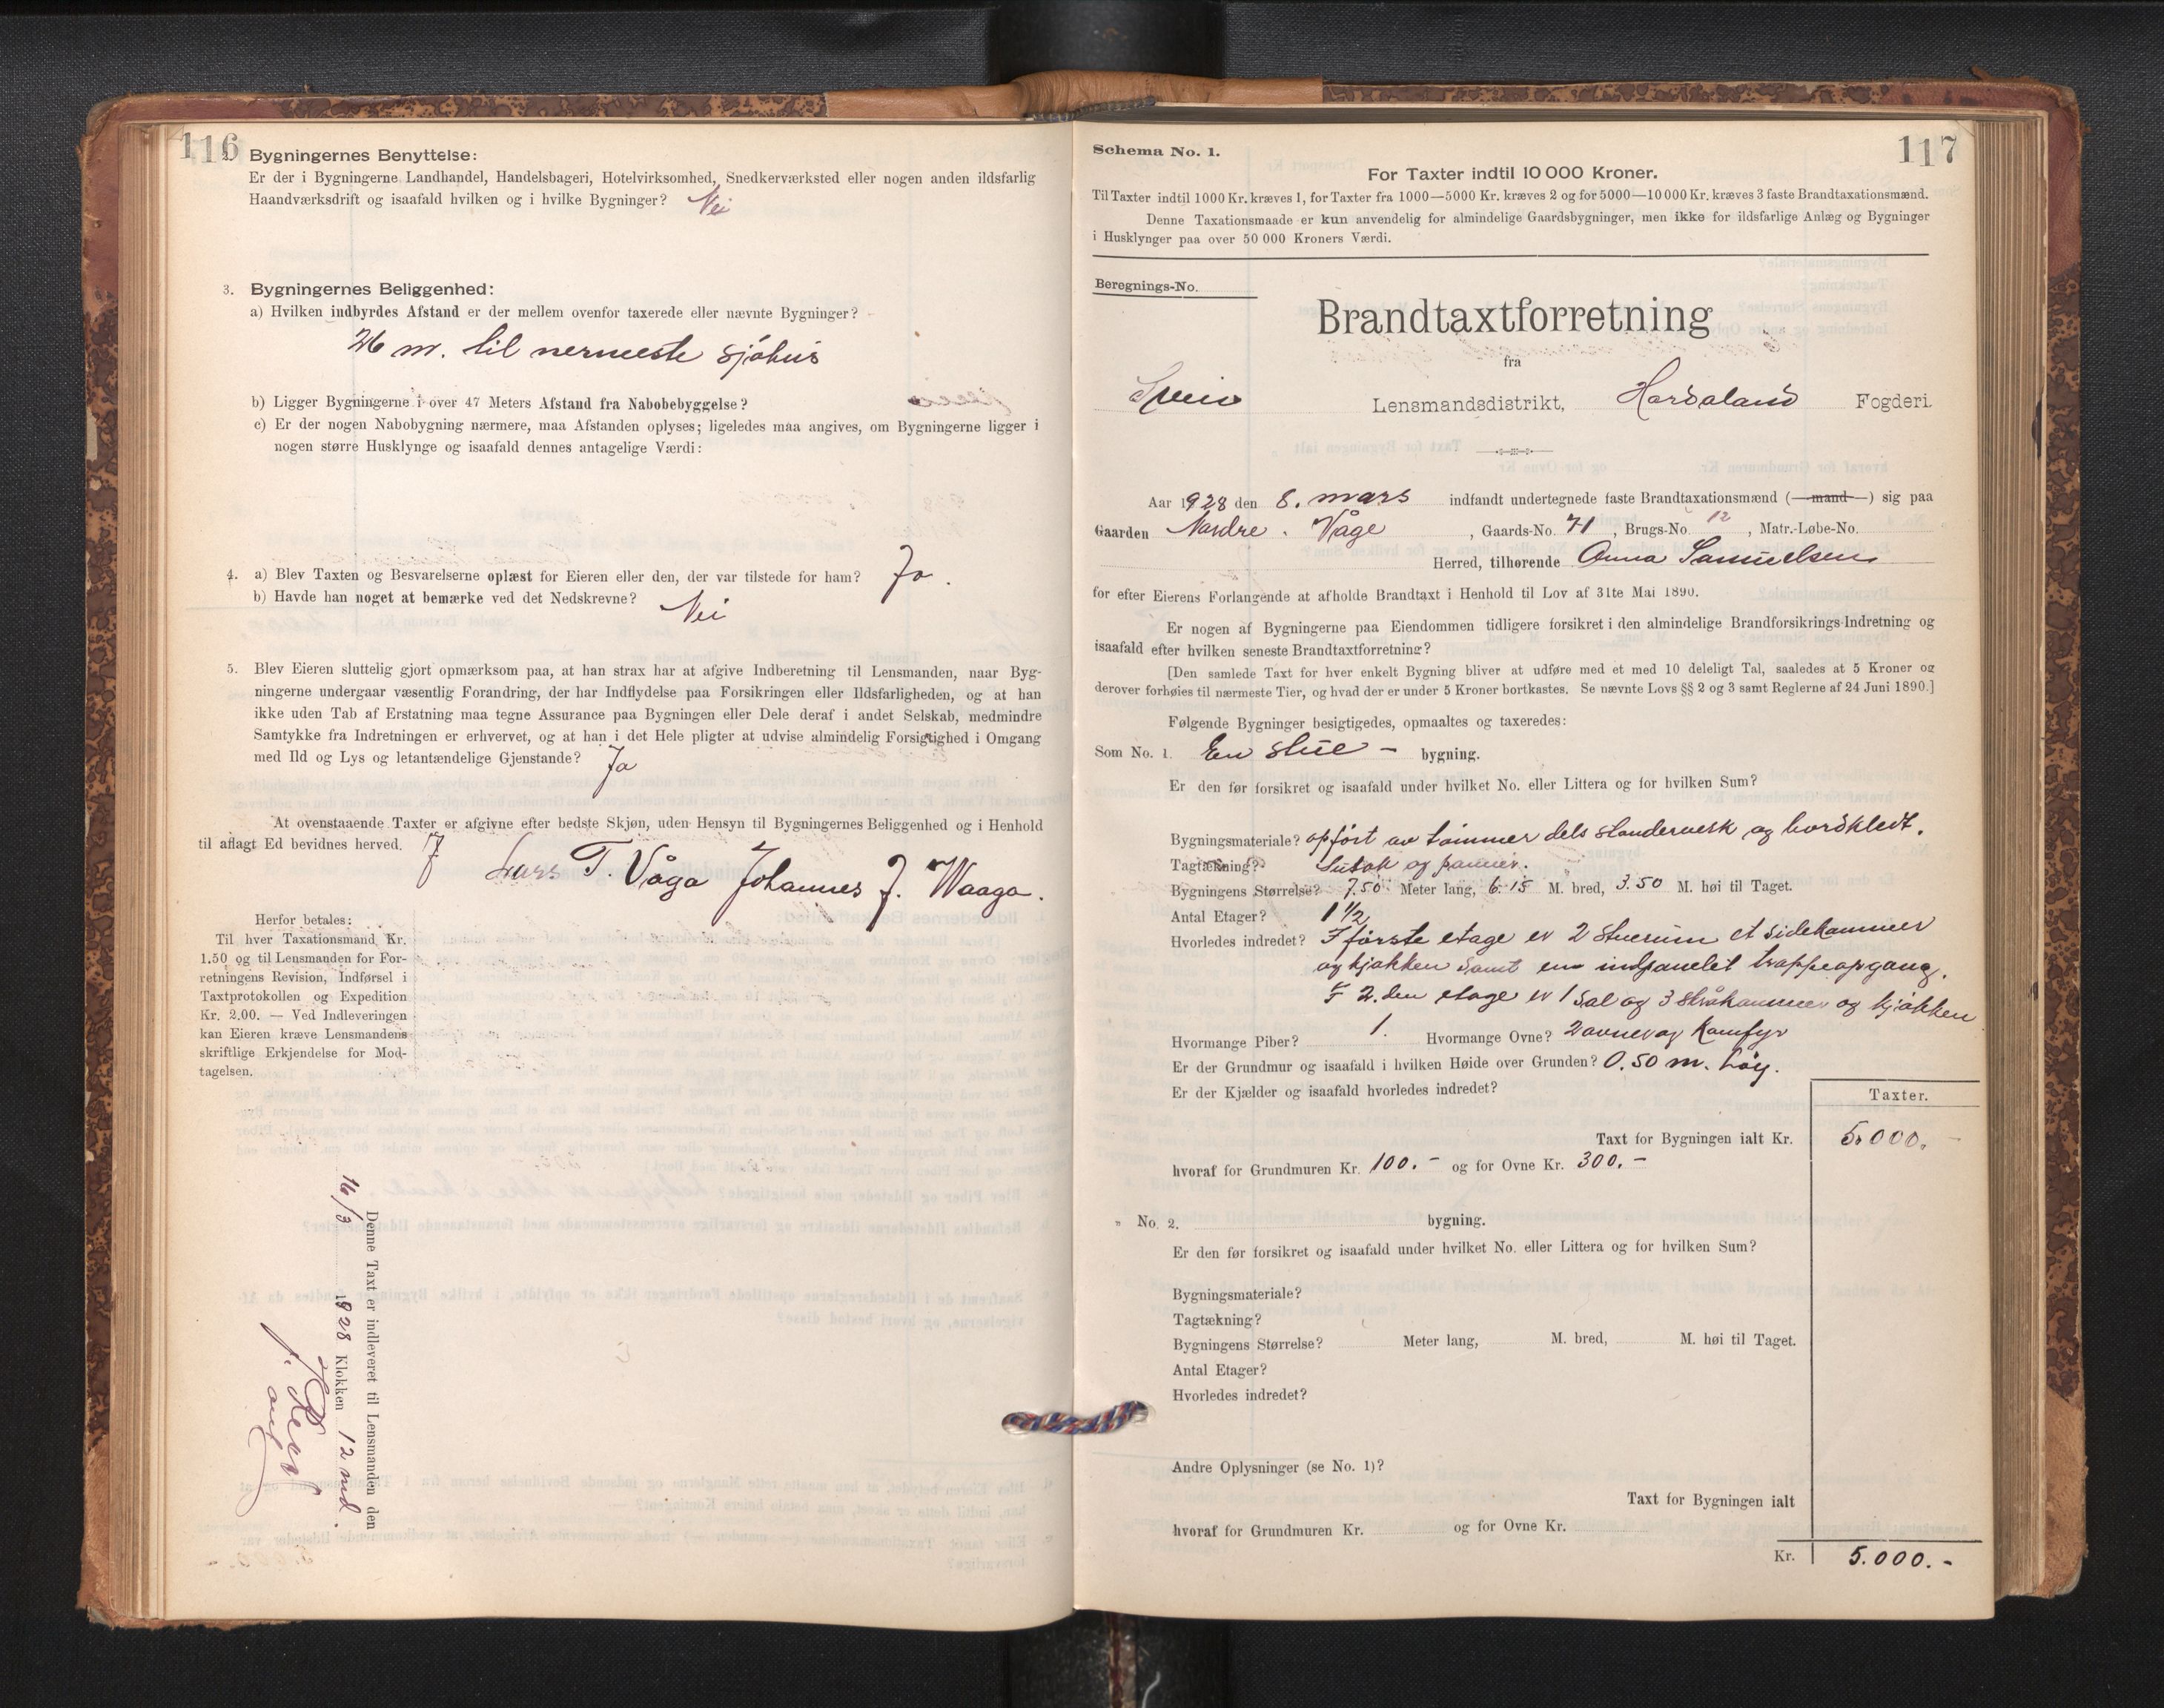 116
2. Bygningernes Benyttelse:
Er der i Bygningerne Landhandel, Handelsbageri, Hotelvirksomhed, Snedkerværksted eller nogen anden ildsfarlig
Haandværksdrift og isaafald hvilken og i hvilke Bygninger? Nei
3. Bygningernes Beliggenhed:
a) Hvilken indbyrdes Afstand er der mellem ovenfor taxerede eller nævnte Bygninger?
26 m. til nermeste sjøhus
b) Ligger Bygningerne i over 47 Meters Afstand fra Nabobebyggelse?
c) Er der nogen Nabobygning nærmere, maa Afstanden oplyses; ligeledes maa angives, om Bygningerne ligger i
nogen større Husklynge og isaafald dennes antagelige Værdi:
4. a) Blev Taxten og Besvarelserne oplæst for Eieren eller den, der var tilstede for ham? Ja.
b) Havde han noget at bemærke ved det Nedskrevne? Nei
5. Blev Eieren sluttelig gjort opmærksom paa, at han strax har at afgive Indberetning til Lensmanden, naar Byg-
ningerne undergaar væsentlig Forandring, der har Indflydelse paa Forsikringen eller Ildsfarligheden, og at han
ikke uden Tab af Erstatning maa tegne Assurance paa Bygningen eller Dele deraf i andet Selskab, medmindre
Samtykke fra Indretningen er erhvervet, og at han i det Hele pligter at udvise almindelig Forsigtighed i Omgang
med Ild og Lys og letantændelige Gjenstande? Ja
At ovenstaaende Taxter er afgivne efter bedste Skjøn, uden Hensyn til Bygningernes Beliggenhed og i Henhold
til aflagt Ed bevidnes herved.
Lars T. Våga Johannes J. Waaga.
Herfor betales:
Til hver Taxationsmand Kr.
1.50 og til Lensmanden for For-
retningens Revision, Indførsel i
Taxtprotokollen og Expedition
Kr. 2.00. — Ved Indleveringen
kan Eieren kræve Lensmandens
skriftlige Erkjendelse for Mod-
tagelsen.
Denne Taxt er indleveret til Lensmanden den
16/3 1928 Klokken 12 md.
117
Schema No. 1.
For Taxter indtil 10 000 Kroner.
Til Taxter indtil 1000 Kr. kræves 1, for Taxter fra 1000—5000 Kr. kræves 2 og for 5000—10 000 Kr. kræves 3 faste Brandtaxationsmænd.
Denne Taxationsmaade er kun anvendelig for almindelige Gaardsbygninger, men ikke for ildsfarlige Anlæg og Bygninger
i Husklynger paa over 50 000 Kroners Værdi.
Beregnings-No.
Brandtaxtforretning
fra
Sveio Lensmandsdistrikt, Hordaland Fogderi.
Aar 1928 den 8. mars indfandt undertegnede faste Brandtaxationsmænd (—mand—) sig paa
Gaarden Nordre Våge, Gaards-No. 71, Brugs-No 12, Matr.-Løbe-No.
Herred, tilhørende Anna Samuelsen
for efter Eierens Forlangende at afholde Brandtaxt i Henhold til Lov af 31te Mai 1890.
Er nogen af Bygningerne paa Eiendommen tidligere forsikret i den almindelige Brandforsikrings-Indretning og
isaafald efter hvilken seneste Brandtaxtforretning?
[Den samlede Taxt for hver enkelt Bygning bliver at udføre med et med 10 deleligt Tal, saaledes at 5 Kroner og
derover forhøies til nærmeste Tier, og hvad der er under 5 Kroner bortkastes. Se nævnte Lovs §§ 2 og 3 samt Reglerne af 24 Juni 1890.]
Følgende Bygninger besigtigedes, opmaaltes og taxeredes:
Som No. 1. En stue — bygning.
Er den før forsikret og isaafald under hvilket No. eller Littera og for hvilken Sum?
Bygningsmateriale? opført av tømmer dels standerverk og bordkledt.
Tagtækning? Sutak og panner.
Bygningens Størrelse? 7.50 Meter lang, 6.15 M. bred, 3.50 M. høi til Taget.
Antal Etager? 1 1/2
Hvorledes indredet? I første etage er 2 stuerum et sidekammer
og kjøkken samt en indpanelet trappeopgang.
I 2. den etage er 1 sal og 3 småkammer og kjøkken
Hvormange Piber? 1. Hvormange Ovne? 2 ovner og Komfyr
Er der Grundmur og isaafald i hvilken Høide over Grunden? 0.50 m. høy.
Er der Kjælder og isaafald hvorledes indredet?
Taxter.
Taxt for Bygningen ialt Kr. 5.000.
hvoraf for Grundmuren Kr. 100.- og for Ovne Kr. 300.-
" No. 2. bygning.
Er den før forsikret og isaafald under hvilket No. eller Littera og for hvilken Sum?
Bygningsmateriale?
Tagtækning?
Bygningens Størrelse? Meter lang, M. bred, M. høi til Taget.
Antal Etager?
Hvorledes indredet?
Andre Oplysninger (se No. 1)?
Taxt for Bygningen ialt
hvoraf for Grundmuren Kr. og for Ovne Kr.
Kr. 5.000.-